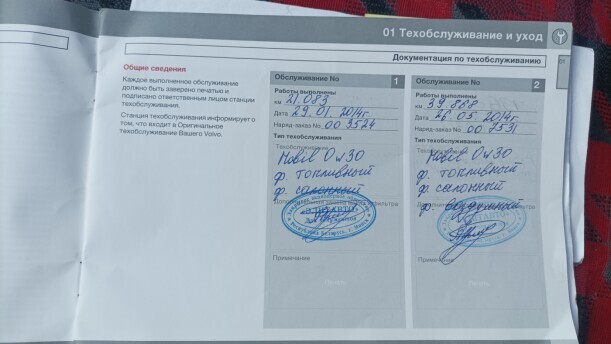 01 Техобслуживание и уход
Документация по техобслуживанию
01
Общие сведения
Каждое выполненное обслуживание
должно быть заверено печатью и
подписано ответственным лицом станции
техобслуживания.
Станция техобслуживания информирует о
том, что входит в Оригинальное
техобслуживание Вашего Volvo.
Обслуживание No 1
Работы выполнены
км 21.083
Дата 29.01.2014г.
Наряд-заказ No 00 3524
Тип техобслуживания
Техобслуживание
Mobil 0w30
ф. топливный
ф. салонный
Примечания
Обслуживание No 2
Работы выполнены
км 39.888
Дата 26.05.2014г.
Наряд-заказ No 00 7531
Тип техобслуживания
Mobil 0w30
ф. топливный
ф. салонный
ф. воздушный
Примечания